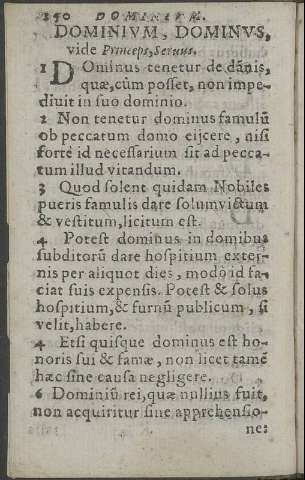 250 DOMINIVM.
DOMINIVM, DOMINVS,
vide Princeps, Seruus.
1 DOminus tenetur de dãnis,
quæ, cùm posset, non impe-
diuit in suo dominio.
2 Non tenetur dominus famulũ
ob peccatum domo eijcere, nisi
fortè id necessarium sit ad pecca-
tum illud vitandum.
3 Quod solent quidam Nobiles
pueris famulis dare solum victum
& vestitum, licitum est.
4 Potest dominus in domibus
subditorũ dare hospitium exter-
nis per aliquot dies, modò id fa-
ciat suis expensis. Potest & solus
hospitium, & furnũ publicum, si
velit, habere.
4 Etsi quisque dominus est ho-
noris sui & famæ, non licet tamẽ
hæc sine causa negligere.
6 Dominiũ rei, quæ nullius fuit,
non acquiritur sine apprehensio-
ne: